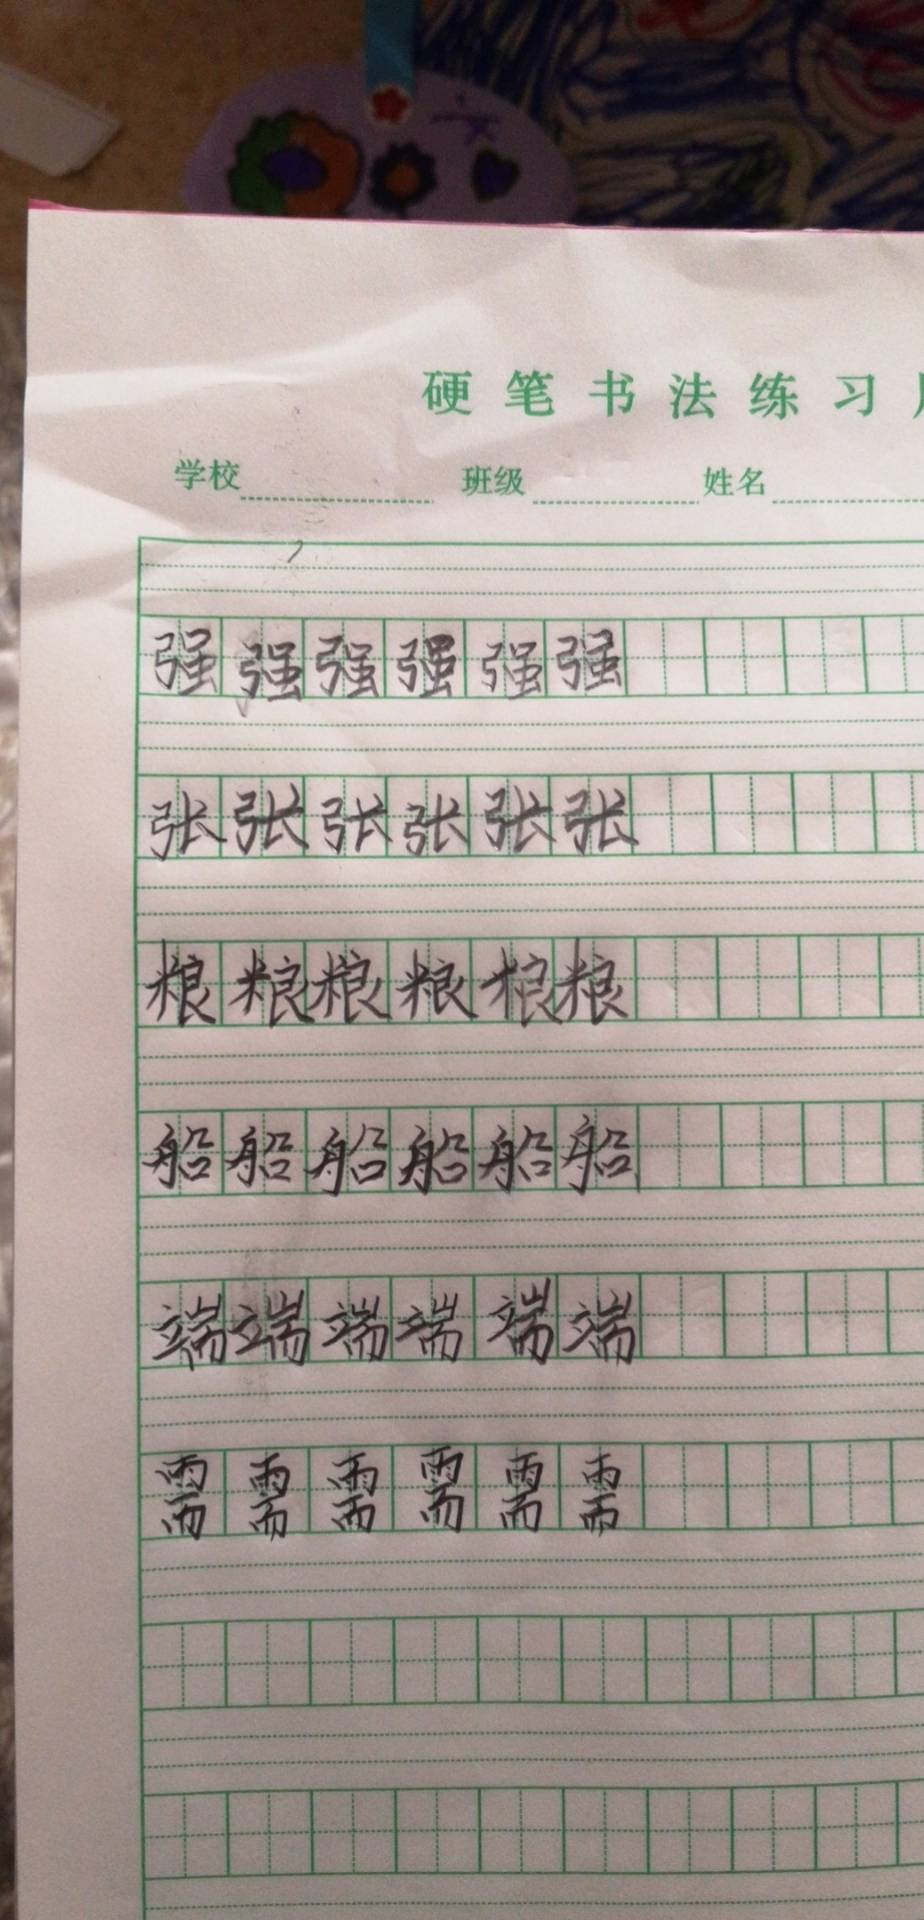 硬笔书法练习
学校 班级 姓名
强强强强强强
张张张张张张
粮粮粮粮粮粮
船船船船船船
端端端端端端
需需需需需需